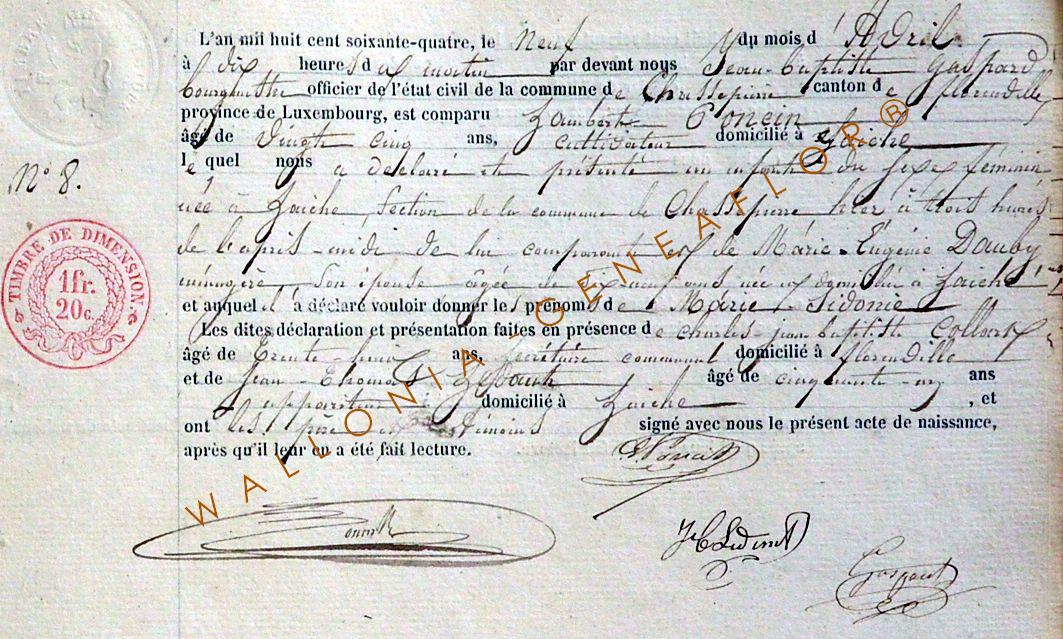 L'an mil huit cent soixante-quatre, le Neuf du mois d'Avril
à dix heures du matin par devant nous Jean-baptiste Gaspard
bourgmestre officier de l'état civil de la commune de Chassepierre canton de florenville
province de Luxembourg, est comparu Lambert Poncin
âgé de Vingt cinq ans, cultivateur domicilié à Laiche
lequel nous a déclaré et présenté un enfant du sexe féminin
N° 8.
née à Laiche, section de la commune de Chassepierre hier à trois heures
de l'après-midi de lui comparant et de Marie-Eugénie Dauby
ménagère, son épouse âgée de ans, née et domiciliée à Laiche
et auquel il a déclaré vouloir donner les prénoms de Marie, Sidonie
Les dites déclaration et présentation faites en présence de charles-jean-baptiste
âgé de Trente-huit ans, secrétaire communal domicilié à florenville
et de Jean-Thomas âgé de cinquante- ans
appariteur domicilié à Laiche , et
ont les père et témoins signé avec nous le présent acte de naissance,
après qu'il leur en a été fait lecture.
TIMBRE DE DIMENSION
1fr.
20c.
WALLONIA-GENEAFLOR®